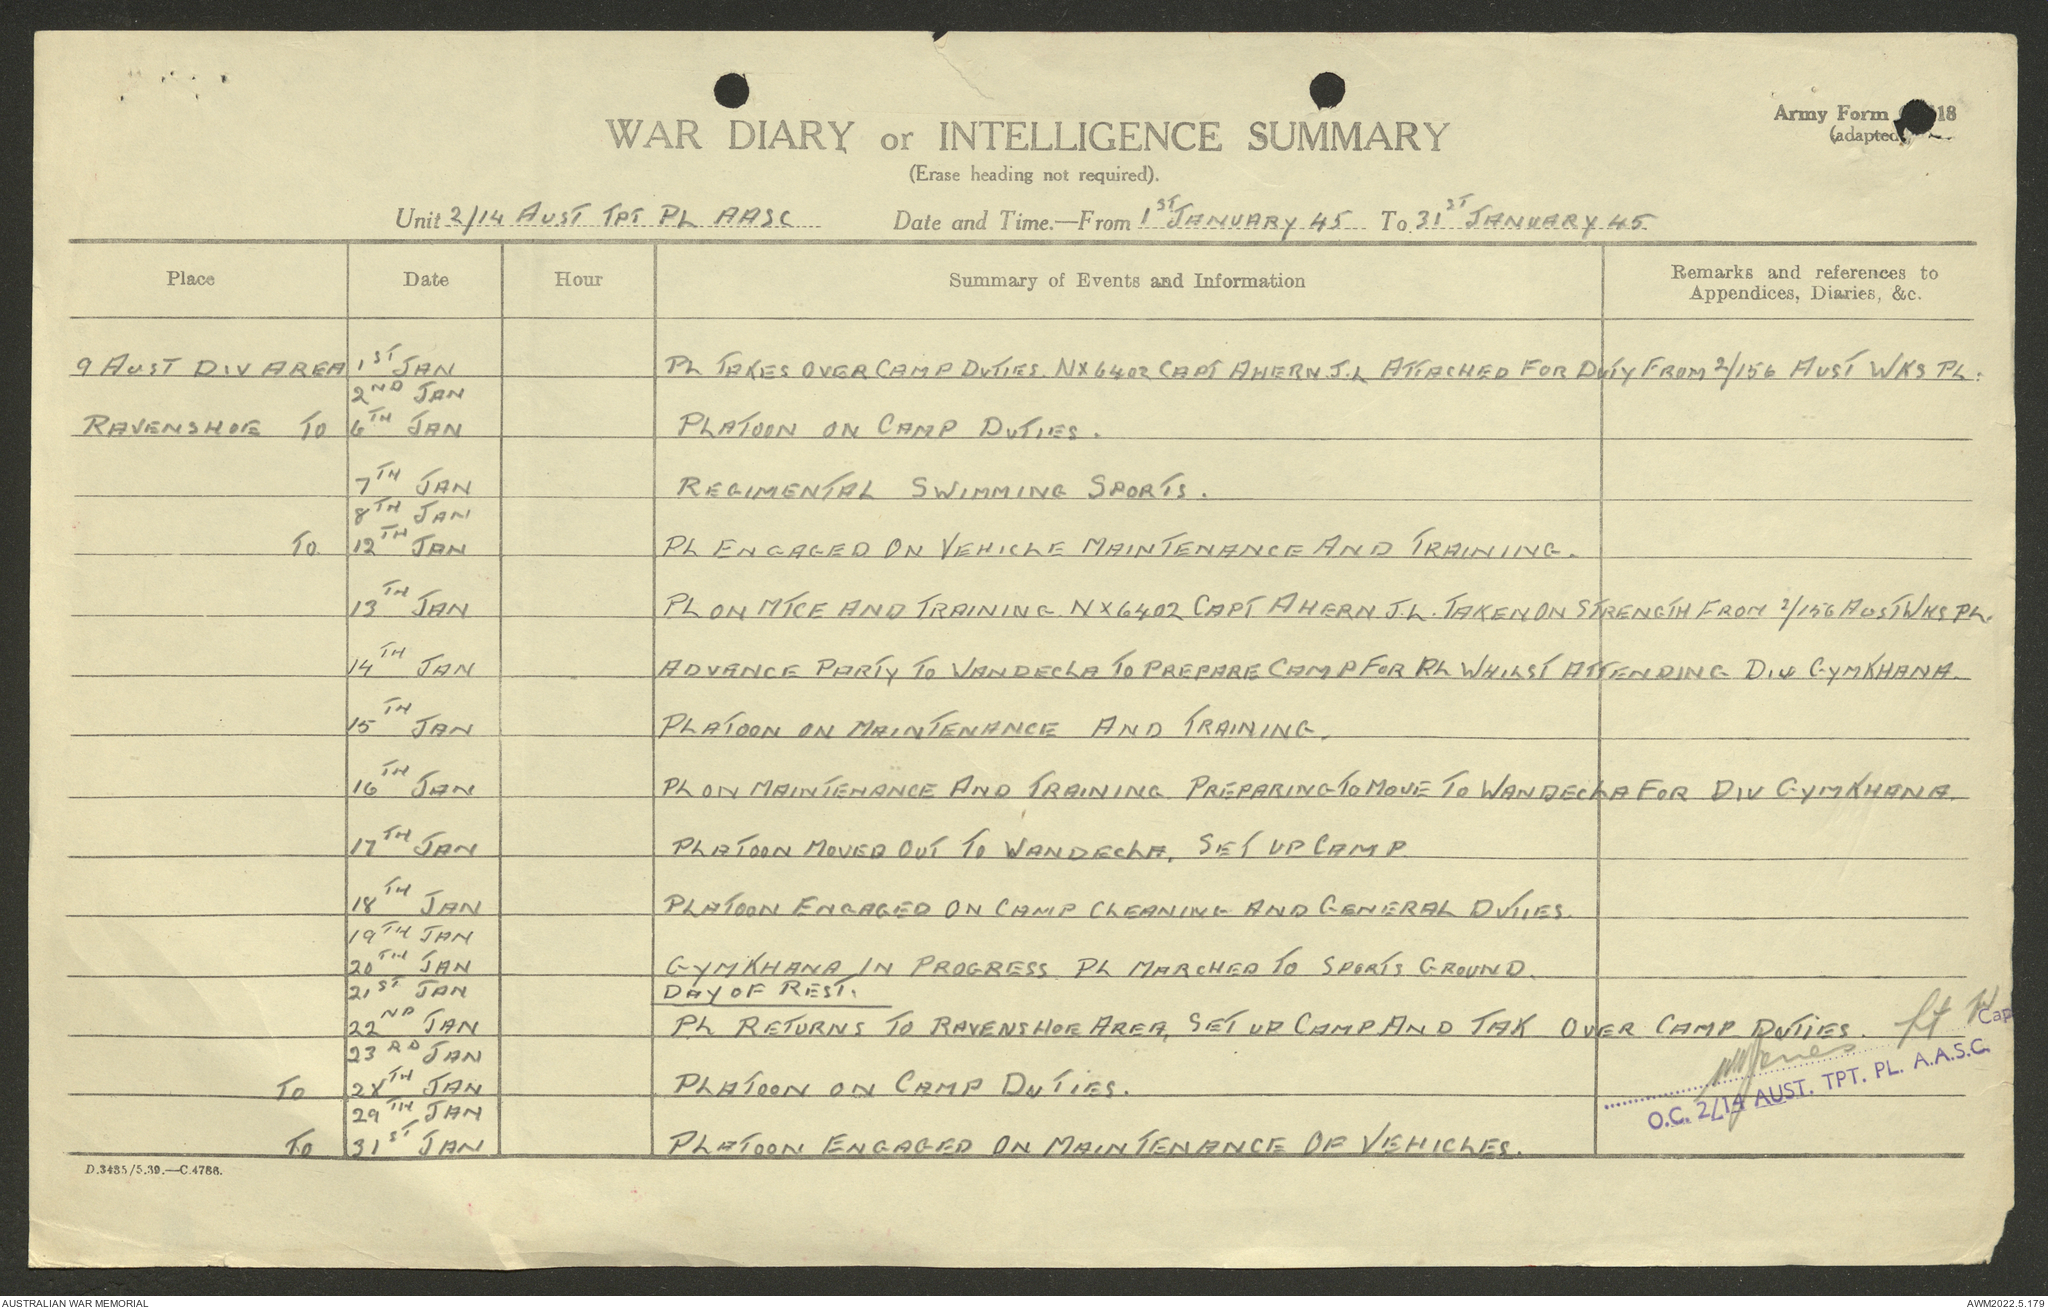 Army Form 18
(adapted)
WAR DIARY or INTELLIGENCE SUMMARY
(Erase heading not required).
Unit 2/14 AUST TPT PL AASC Date and Time.—From 1ST JANUARY 45 To 31ST JANUARY 45
Place Date Hour Summary of Events and Information Remarks and references to Appendices, Diaries, &c.
9 AUST DIV AREA 1ST JAN PL TAKES OVER CAMP DUTIES. NX6402 CAPT AHERN J.L ATTACHED FOR DUTY FROM 2/156 AUST WKS PL.
2ND JAN
RAVENSHOE TO 6TH JAN PLATOON ON CAMP DUTIES.
7TH JAN REGIMENTAL SWIMMING SPORTS.
8TH JAN
TO 12TH JAN PL ENGAGED ON VEHICLE MAINTENANCE AND TRAINING.
13TH JAN PL ON MTCE AND TRAINING. NX6402 CAPT AHERN J.L. TAKEN ON STRENGTH FROM 2/156 AUST WKS PL.
14TH JAN ADVANCE PARTY TO WANDECLA TO PREPARE CAMP FOR PL WHILST ATTENDING DIV GYMKHANA.
15TH JAN PLATOON ON MAINTENANCE AND TRAINING.
16TH JAN PL ON MAINTENANCE AND TRAINING. PREPARING TO MOVE TO WANDECLA FOR DIV GYMKHANA.
17TH JAN PLATOON MOVED OUT TO WANDECLA, SET UP CAMP.
18TH JAN PLATOON ENGAGED ON CAMP CLEANING AND GENERAL DUTIES.
19TH JAN
20TH JAN GYMKHANA IN PROGRESS. PL MARCHED TO SPORTS GROUND.
21ST JAN DAY OF REST.
22ND JAN PL RETURNS TO RAVENSHOE AREA, SET UP CAMP AND TAK OVER CAMP DUTIES.
23RD JAN
TO 28TH JAN PLATOON ON CAMP DUTIES.
29TH JAN
TO 31ST JAN PLATOON ENGAGED ON MAINTENANCE OF VEHICLES.
Cap
O.C. 2/14 AUST. TPT. PL. A.A.S.C.
D.3485/5.39.—C.4786.
AUSTRALIAN WAR MEMORIAL
AWM2022.5.179